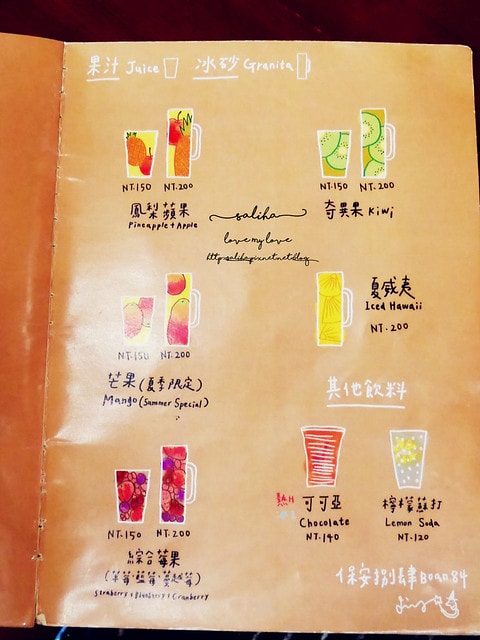 果汁 Juice 冰砂 Granita
NT.150 NT.200
鳳梨蘋果
Pineapple + Apple
NT.150 NT.200
奇異果 Kiwi
saliha
love my love
NT.150 NT.200
芒果(夏季限定)
Mango (Summer Special)
夏威夷
Iced Hawaii
NT.200
NT.150 NT.200
綜合莓果
(草莓+藍莓+蔓越莓)
Straberry + Blueberry + Cranberry
其他飲料
熱H
可可亞
Chocolate
NT.140
檸檬蘇打
Lemon Soda
NT.120
保安捌肆 Boan 84